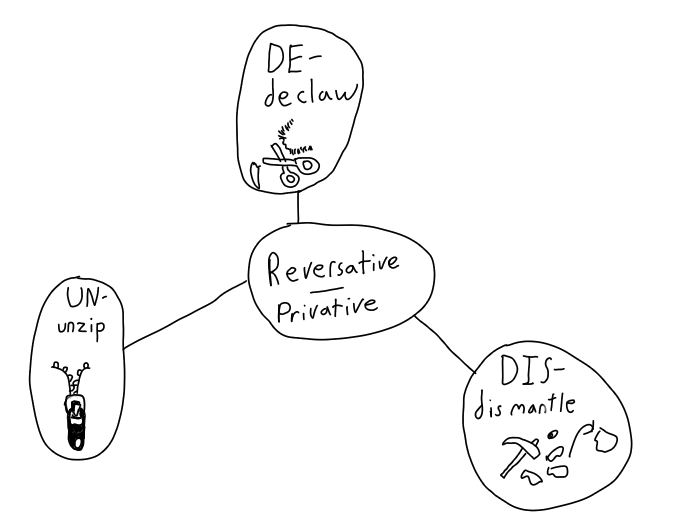 DE-
declaw
Reversative
Privative
UN-
unzip
DIS-
dismantle